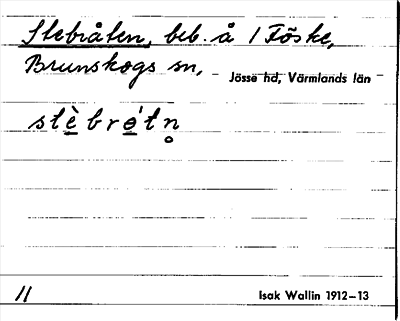 Slebråten, beb. å 1 Töske,
Brunskogs sn, Jösse hd, Värmlands län
stèbrǫ́tn̥
11 Isak Wallin 1912–13